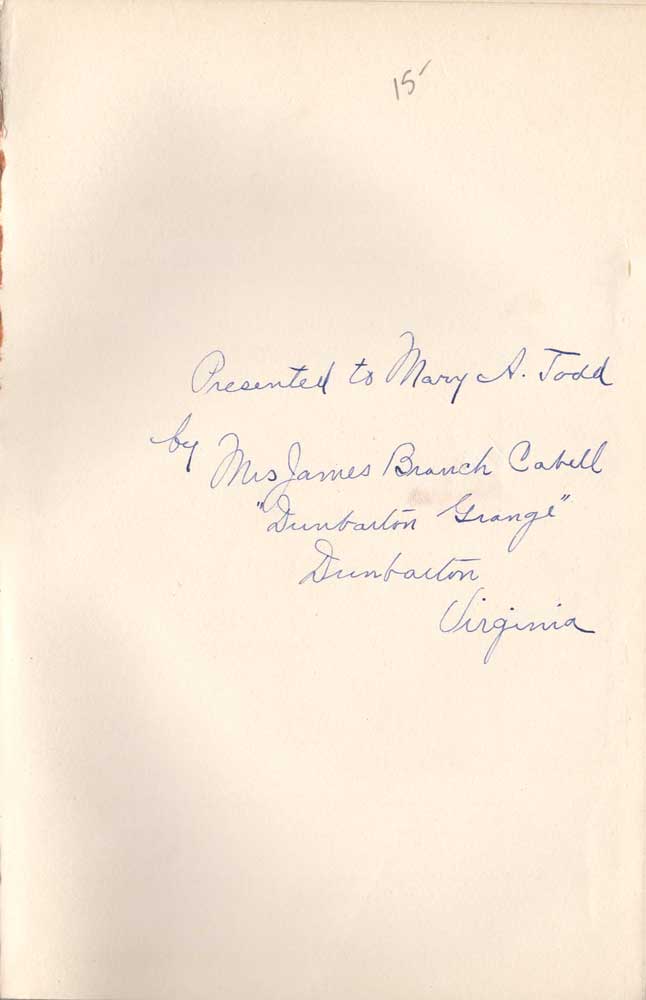 15
Presented to Mary A. Todd
by Mrs James Branch Cabell
"Dunbarton Grange"
Dunbarton
Virginia